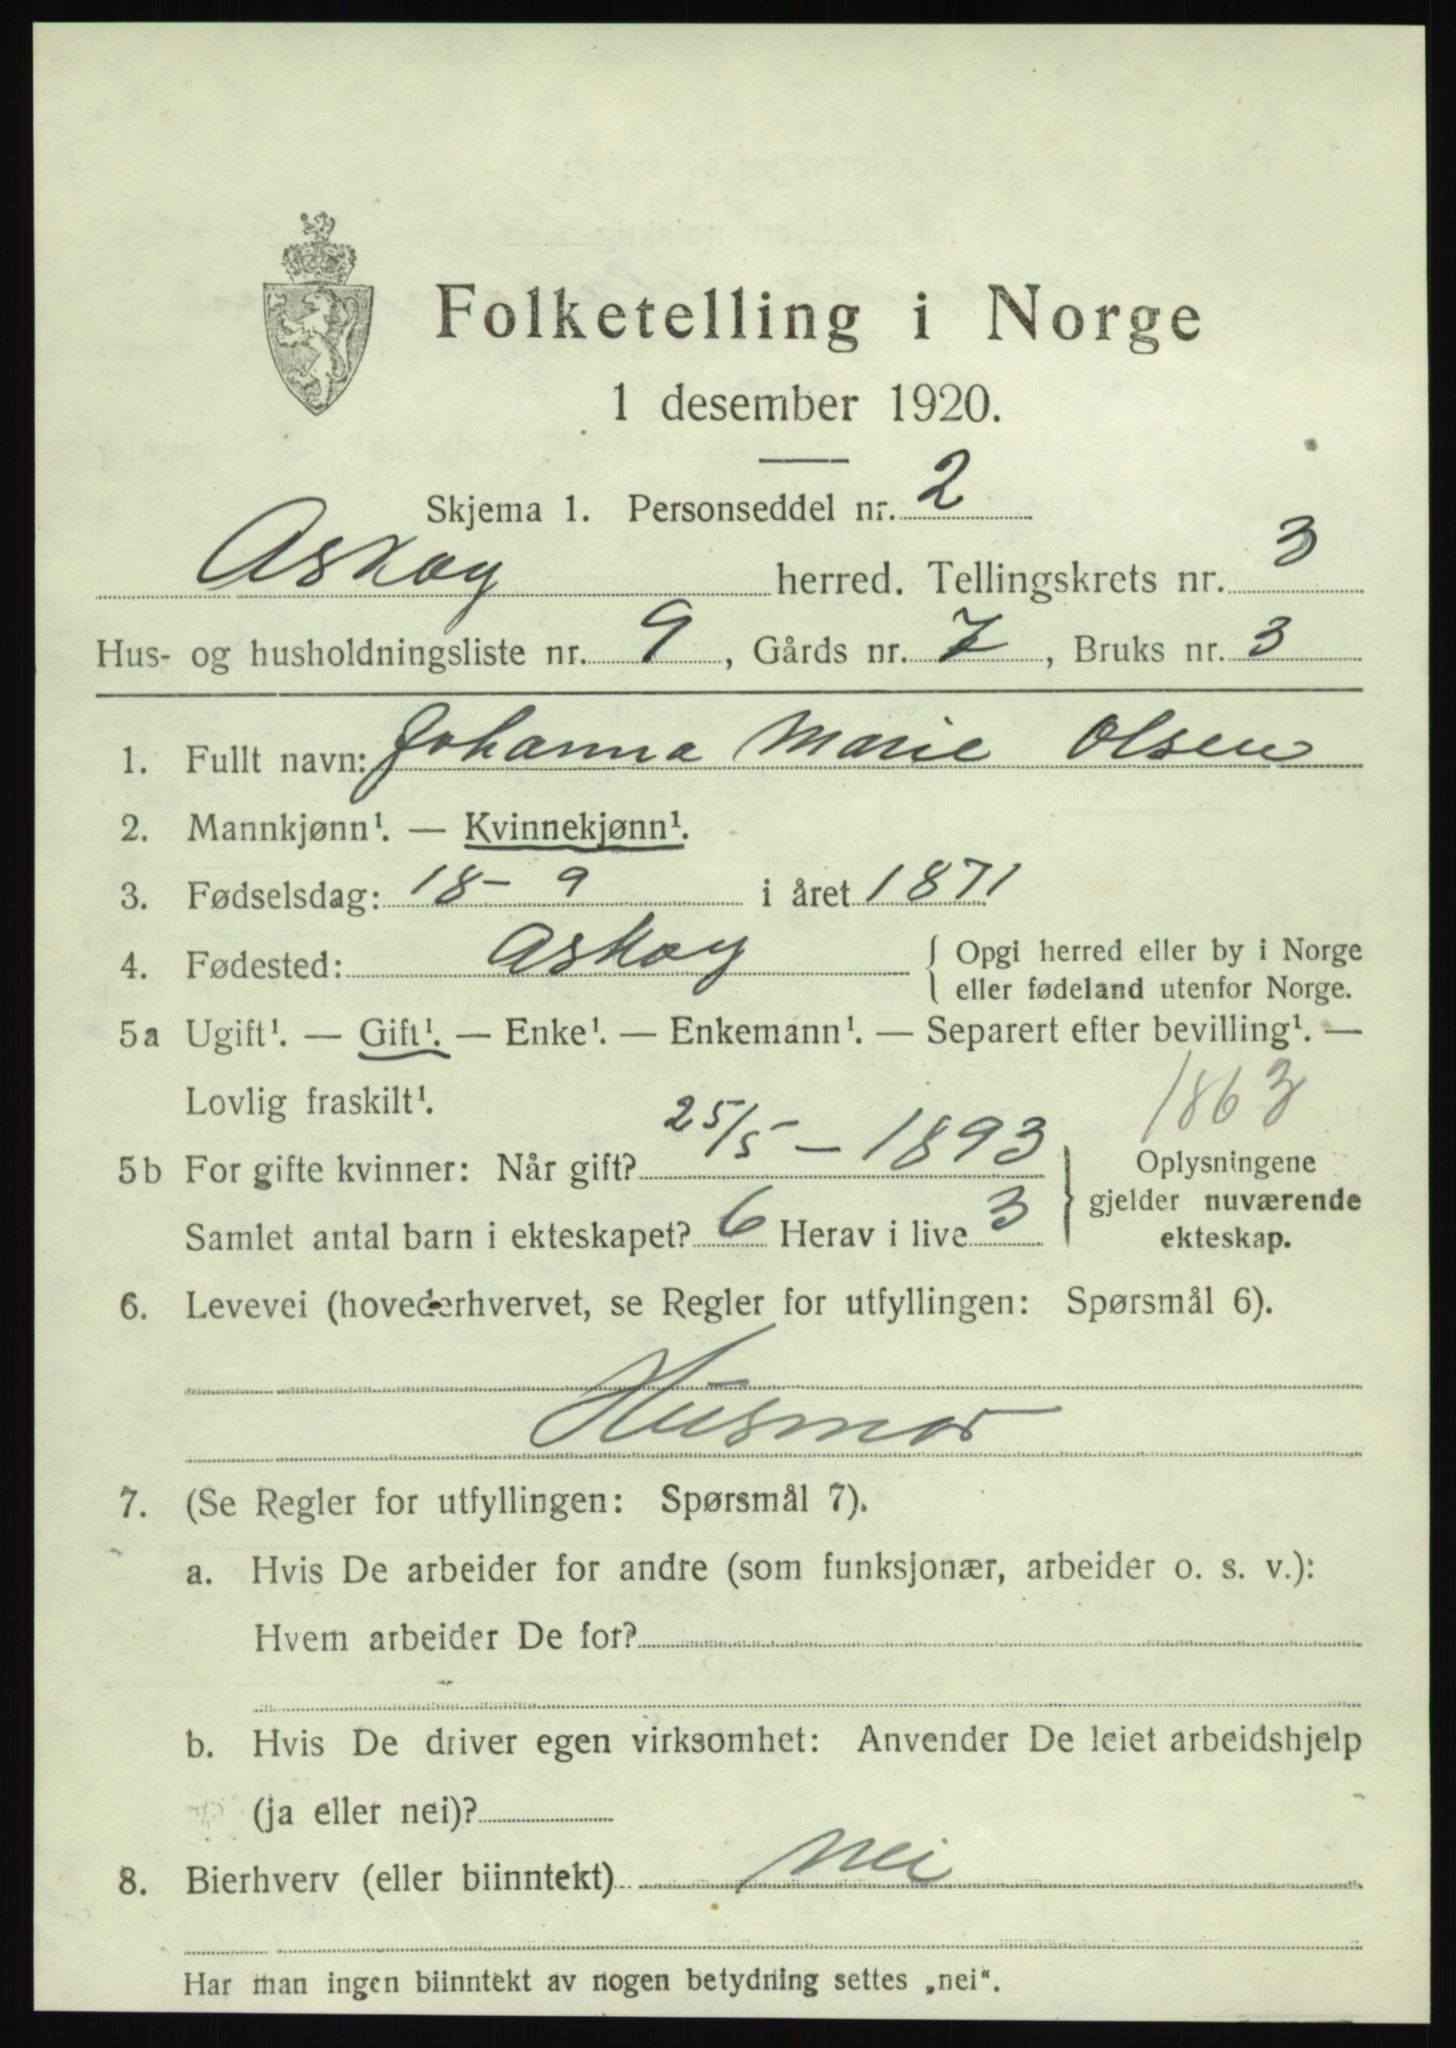 Folketelling i Norge
1 desember 1920.
Skjema 1. Personseddel nr. 2
Askøy herred. Tellingskrets nr. 3
Hus- og husholdningsliste nr. 9, Gårds nr. 7, Bruks nr. 3
1. Fullt navn: Johanna Marie Olsen
2. Mannkjønn¹. — Kvinnekjønn¹.
3. Fødselsdag: 18 - 9 i året 1871
4. Fødested: Askøy { Opgi herred eller by i Norge
eller fødeland utenfor Norge.
5a Ugift¹. — Gift¹. — Enke¹. — Enkemann¹. — Separert efter bevilling¹. —
Lovlig fraskilt¹. 1863
5b For gifte kvinner: Når gift? 25/5 - 1893 } Oplysningene
gjelder nuværende
Samlet antal barn i ekteskapet? 6 Herav i live 3 ekteskap.
6. Levevei (hovederhvervet, se Regler for utfyllingen: Spørsmål 6).
Husmor
7. (Se Regler for utfyllingen: Spørsmål 7).
a. Hvis De arbeider for andre (som funksjonær, arbeider o. s. v.):
Hvem arbeider De for?
b. Hvis De driver egen virksomhet: Anvender De leiet arbeidshjelp
(ja eller nei)?
8. Bierhverv (eller biinntekt) nei
Har man ingen biinntekt av nogen betydning settes „nei“.